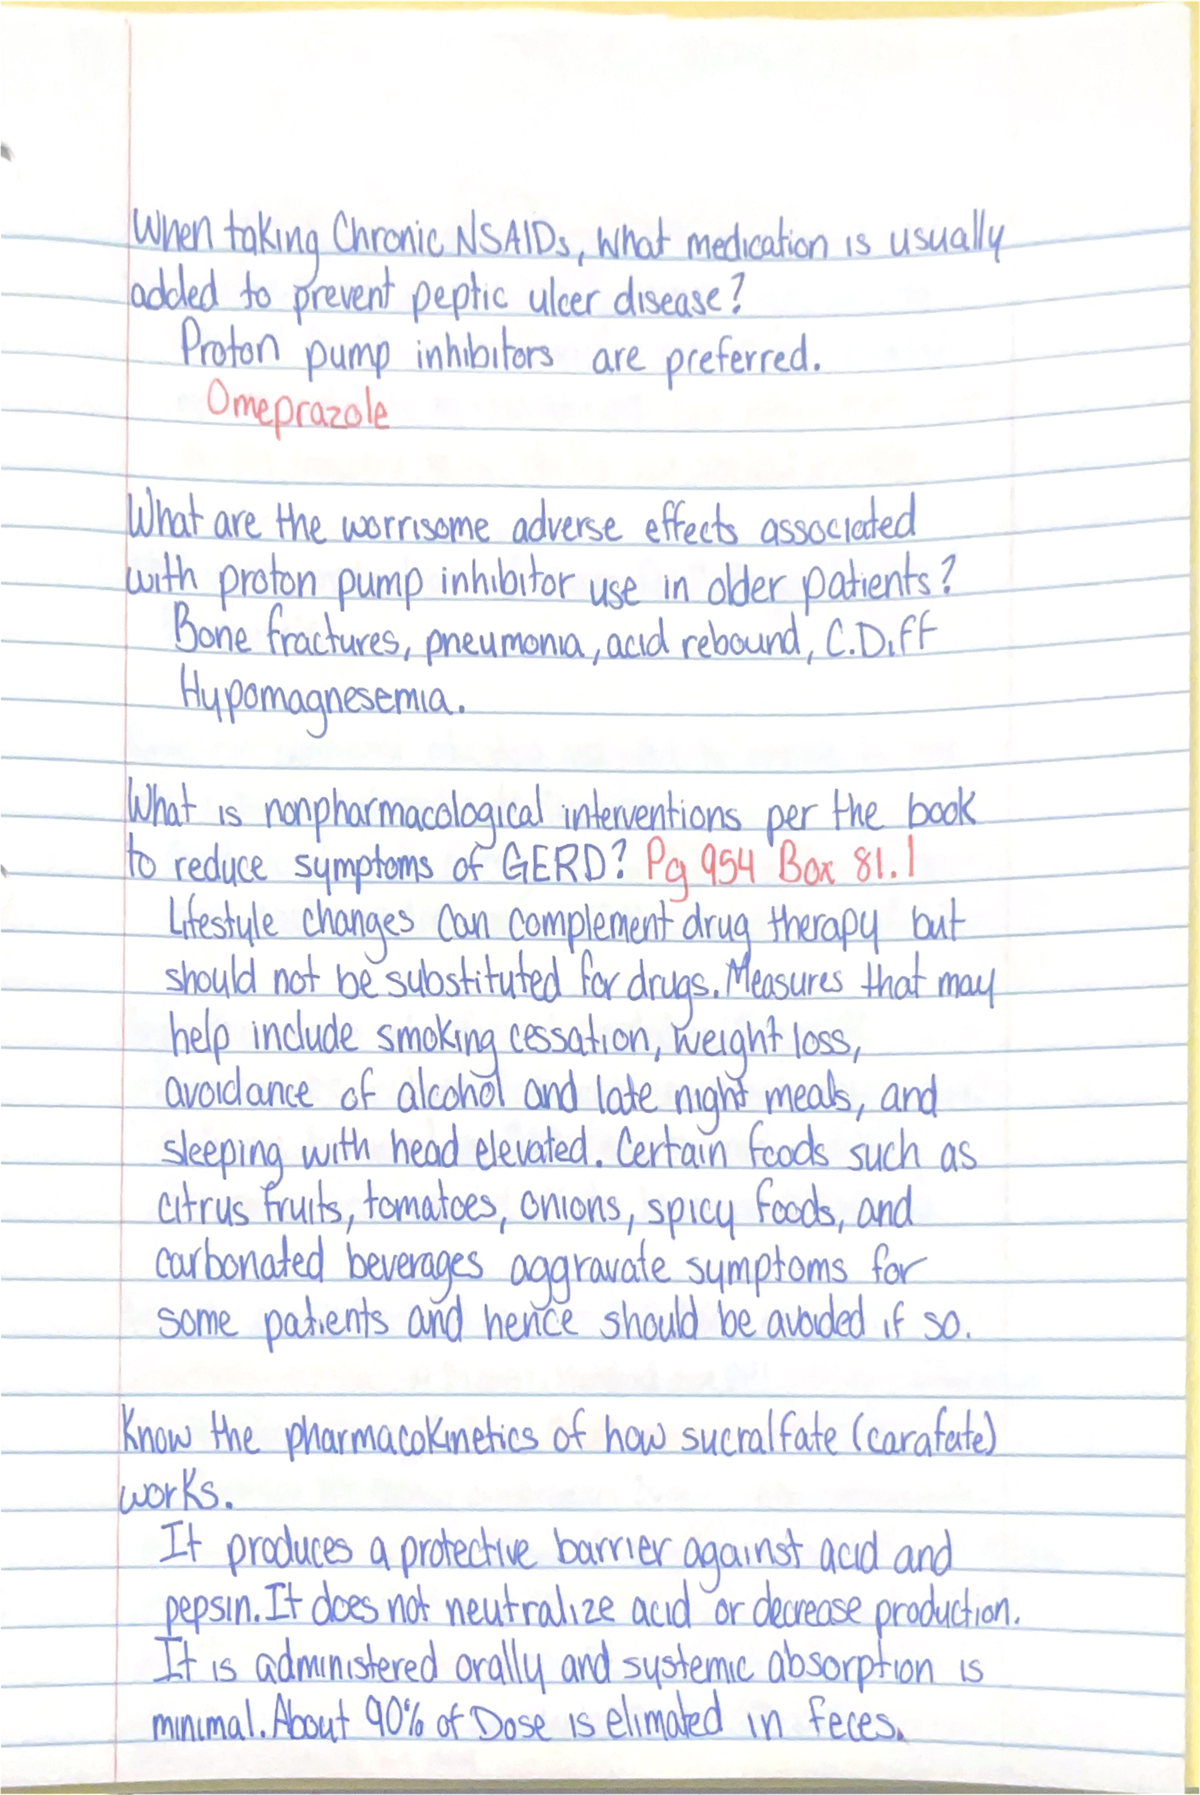 When taking Chronic NSAIDs, what medication is usually
added to prevent peptic ulcer disease?
Proton pump inhibitors are preferred.
Omeprazole
What are the worrisome adverse effects associated
with proton pump inhibitor use in older patients?
Bone fractures, pneumonia, acid rebound, C.Diff
Hypomagnesemia.
What is nonpharmacological interventions per the book
to reduce symptoms of GERD? Pg 954 Box 81.1
Lifestyle changes can complement drug therapy but
should not be substituted for drugs. Measures that may
help include smoking cessation, weight loss,
avoidance of alcohol and late night meals, and
sleeping with head elevated. Certain foods such as
citrus fruits, tomatoes, onions, spicy foods, and
carbonated beverages aggravate symptoms for
some patients and hence should be avoided if so.
Know the pharmacokinetics of how sucralfate (carafate)
works.
It produces a protective barrier against acid and
pepsin. It does not neutralize acid or decrease production.
It is administered orally and systemic absorption is
minimal. About 90% of Dose is elimated in feces.